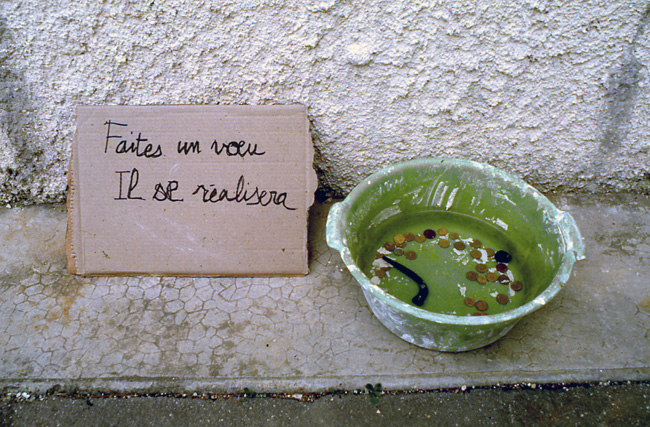 Faites un vœu
Il se réalisera